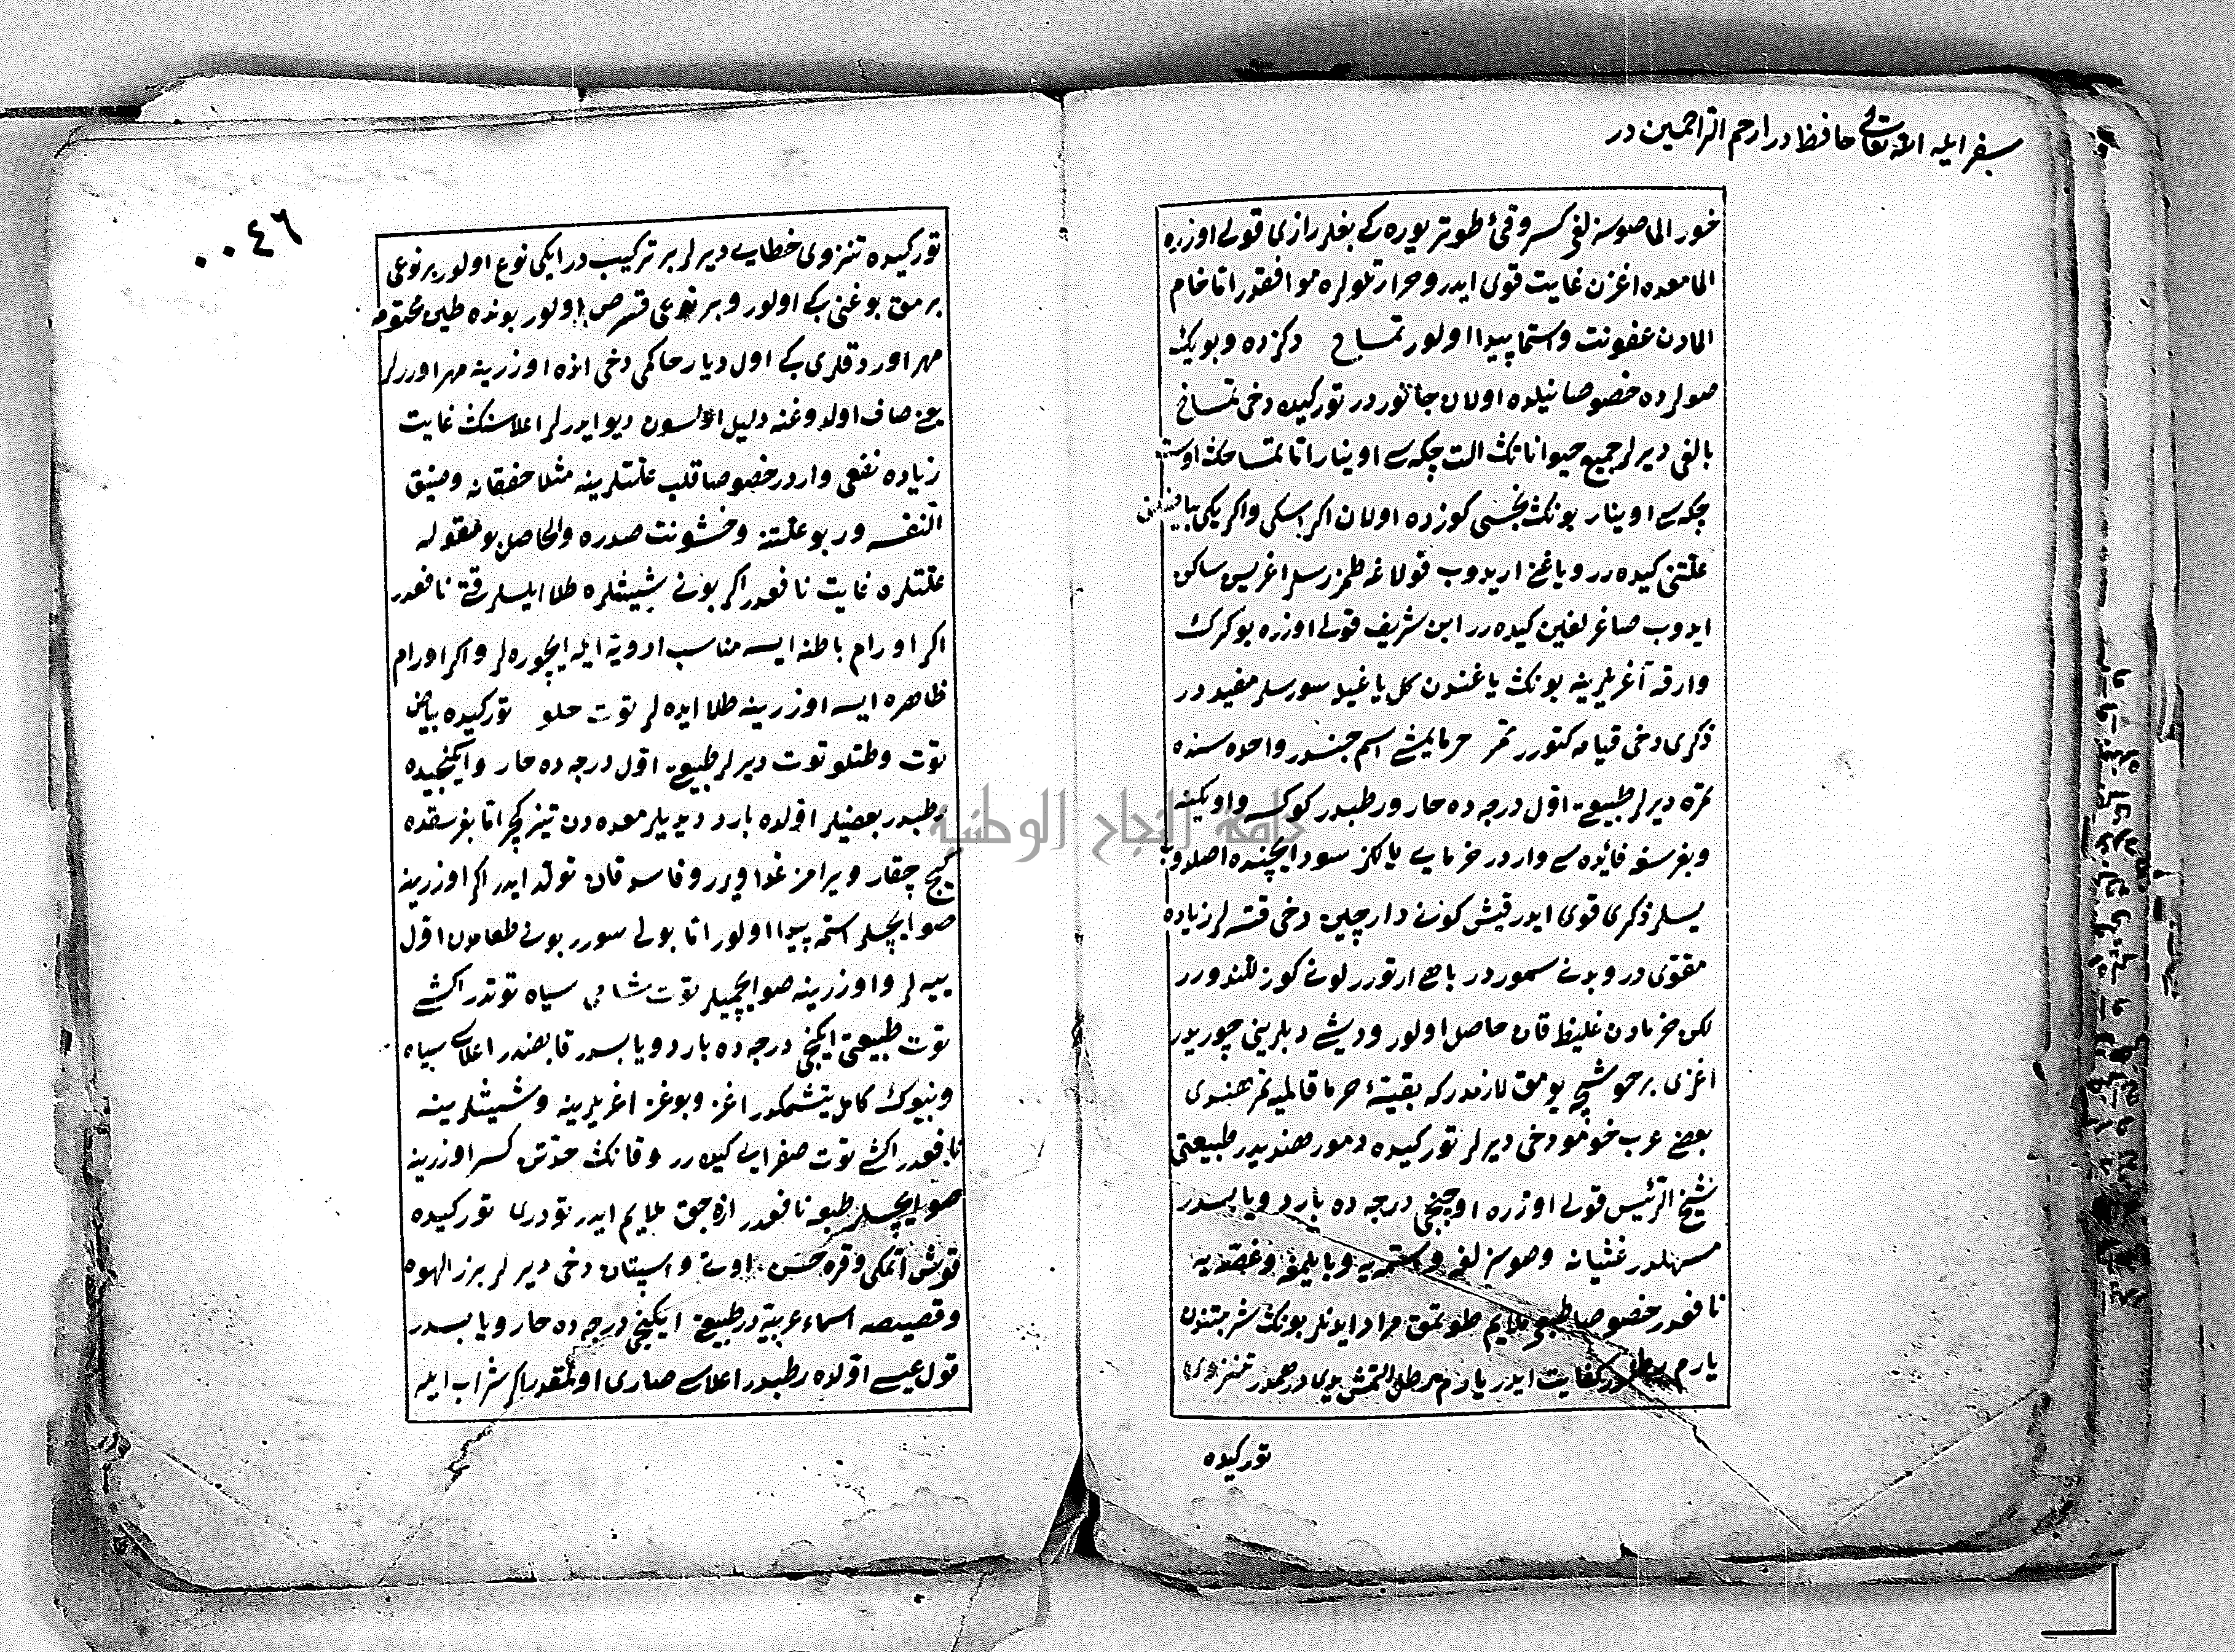 سفر ایله الله تعالی حافظدر ارحم الراحمین در
خور الما صوسزلغی کسر و قیٔ طوتر یوره کے بغلر رازی قولی اوزره
الما معده اغزن غایت قوی ایدر و حرارتلولره موافقدر اما خام
المادن عفونت و استما پیدا اولور تمساح دکزده و بویک
صولرده خصوصا نیلده اولان جانوردر تورکیده دخی تمساح
بالغی دیرلر جمیع حیواناتک الت چکه سے اوینار اما تمساحک اوست
چکه سے اوینار بونک نجسی کوزده اولان اکر اسکی و اکر یکی بیاضلق
علتنی کیده رر و یاغن اریدوب قولاغه طمزرسلر اغریسن ساکن
ایدوب صاغرلغین کیده رر ابن شریف قولی اوزره بوکرک
وارقه آغریلرینه بونک یاغندن کل یاغیله سورسلر مفیددر
ذکری دخی قیامه کتورر تمر خرمایمشے اسم جنسدر واحده سنده
تمره دیرلر طبیعتی اول درجه ده حار و رطبدر کوکسه و اویکنه
و بغرسغه فائده سے واردر خرمایے یالکز سود ایچنده اصلدوب
یسلر ذکری قوی ایدر قیش کونی دارچین دخی قتسه لر زیاده
مقوی در و بدنے سمور در باهی ارتورر لونے کوزللندورر
لکن خرمادن غلیظ قان حاصل اولور و دیشے دبلرینی چوریدر
اغزی برخوشچه یومق لازمدر که بقیهٔ خرما قالمیه تمر هندی
بعضے عرب خومو دخی دیرلر تورکیده دمور هندیدر طبیعتی
شیخ الرئیس قولی اوزره اوچنجی درجه ده بارد و یابسدر
مسهلدر غثیانه و صوسزلغه و استمه یه و بایلمغه و غصه یه
نافعدر خصوصا طبعی ملایم طوتمق مراد ایدنلر بونک شربتندن
یارم رطل کفایت ایدر یارم رطل التمش یدی درهمدر تنزوی
تورکیده
٠٠٤٦
تورکیده تنزوی خطایے دیرلر بر ترکیب در ایکی نوع اولور بر نوعی
برمق بوغنی کے اولور و بر نوعی قرص اولور بونده طین مختومه
مهر اوردقلری کے اول دیار حاکمی دخی انده اوزرینه مهر اوررلر
یعنے صاف اولدوغنه دلیل اولسون دیو ایدرلر اعلاسنک غایت
زیاده نفعی واردر خصوصا قلب علتلرینه مثلا خفقانه و ضیق
النفسه و ربو علتنه و خشونت صدره والحاصل بو مقوله
علتلره غایت نافعدر اکر بونے شیشلره طلا ایلسلر قتے نافعدر
اکر اورام باطنه ایسه مناسب ادویه ایله ایچوره لر و اکر اورام
ظاهره ایسه اوزرینه طلا ایده لر توت حلو تورکیده بیاض
توت و طتلو توت دیرلر طبیعتی اول درجه ده حار و ایکنجیده
رطبدر بعضیلر اولده بارد دیدیلر معده دن تیز کچر اما بغرسقده
کیچ چقار و یرامز غدا ویرر و فاسد قان تولد ایدر اکر اوزرینه
صو ایچسلر استمه پیدا اولور اما بولی سورر بونے طعامدن اول
ییه لر و اوزرینه صو ایچمیلر توت شامی سیاه توتدر اکشے
توت طبیعتی ایکنجی درجه ده بارد و یابسدر قابضدر اعلاسے سیاه
و بیوک کامل یتشمکدر اغز و بوغز اغریلرینه و شیشلرینه
نافعدر اکشے توت صفرایے کیده رر و قانک حدتن کسر اوزرینه
صو ایچسلر طبعه نافعدر ازه جق ملایم ایدر تودری تورکیده
قوش اتمکی و قره حسن اوتی و اسپتان دخی دیرلر بزر الهوه
و قصیصه اسماء عربیه در طبیعتی ایکنجی درجه ده حار و یابسدر
قول عیسے اولده رطبدر اعلاسے صاری اولمقدر اکر شراب ایله
جامعة النجاح الوطنية